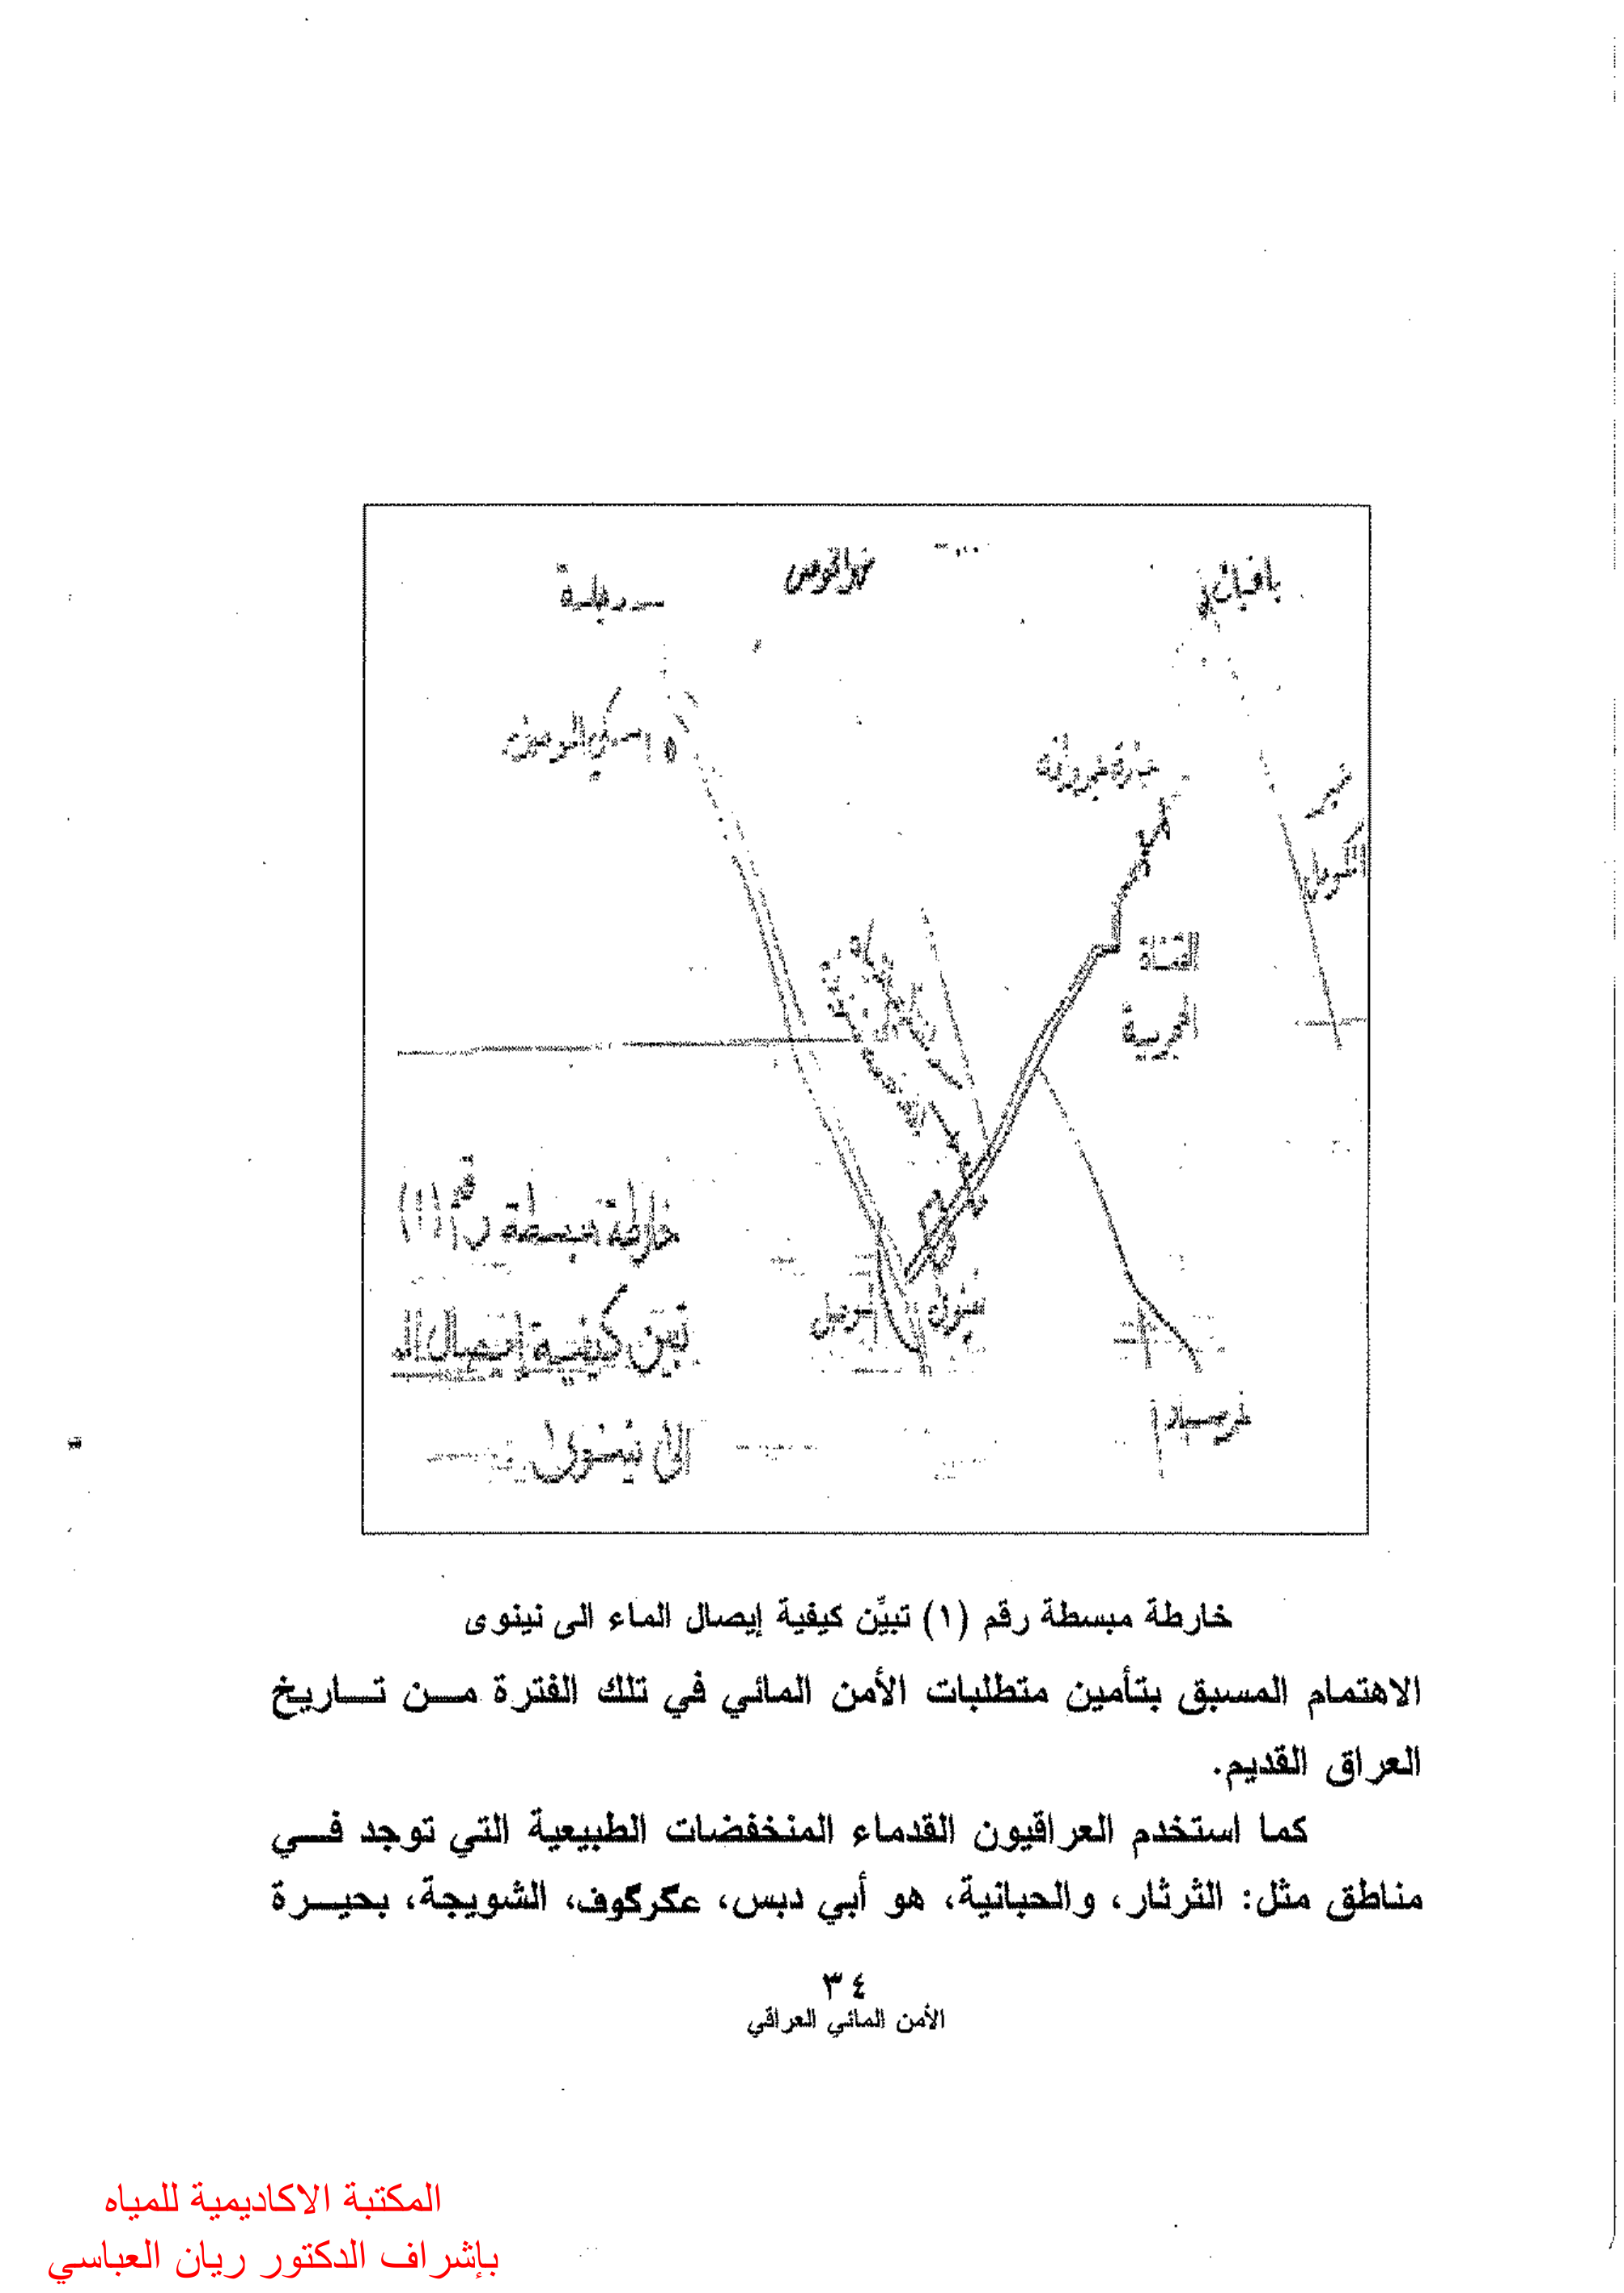 نهر الخوصر
القناة
خارطة مبسطة رقم (١)
تبين كيفية ايصال الم
الى نينوى
الموصل
نينوى
خارطة مبسطة رقم (١) تبيِّن كيفية إيصال الماء الى نينوى
الاهتمام المسبق بتأمين متطلبات الأمن المائي في تلك الفترة مـــن تـــاريخ
العراق القديم.
كما استخدم العراقيون القدماء المنخفضات الطبيعية التي توجد فـــي
مناطق مثل: الثرثار، والحبانية، هو أبي دبس، عگرگوف، الشويجة، بحيـــرة
٣٤
الأمن المائي العراقي
المكتبة الاكاديمية للمياه
بإشراف الدكتور ريان العباسي